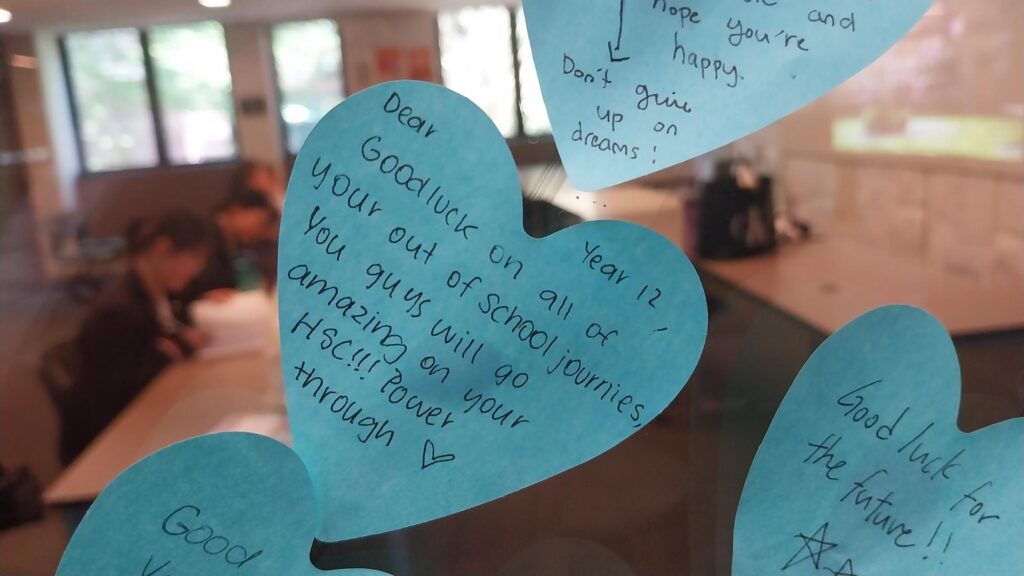 and
hope you're
happy.
Don't give
up on
dreams!
Dear Year 12,
Goodluck on all of
your out of school journies,
You guys will go
amazing on your
HSC!!! Power
through ♡
Good luck for
the future!!
Good